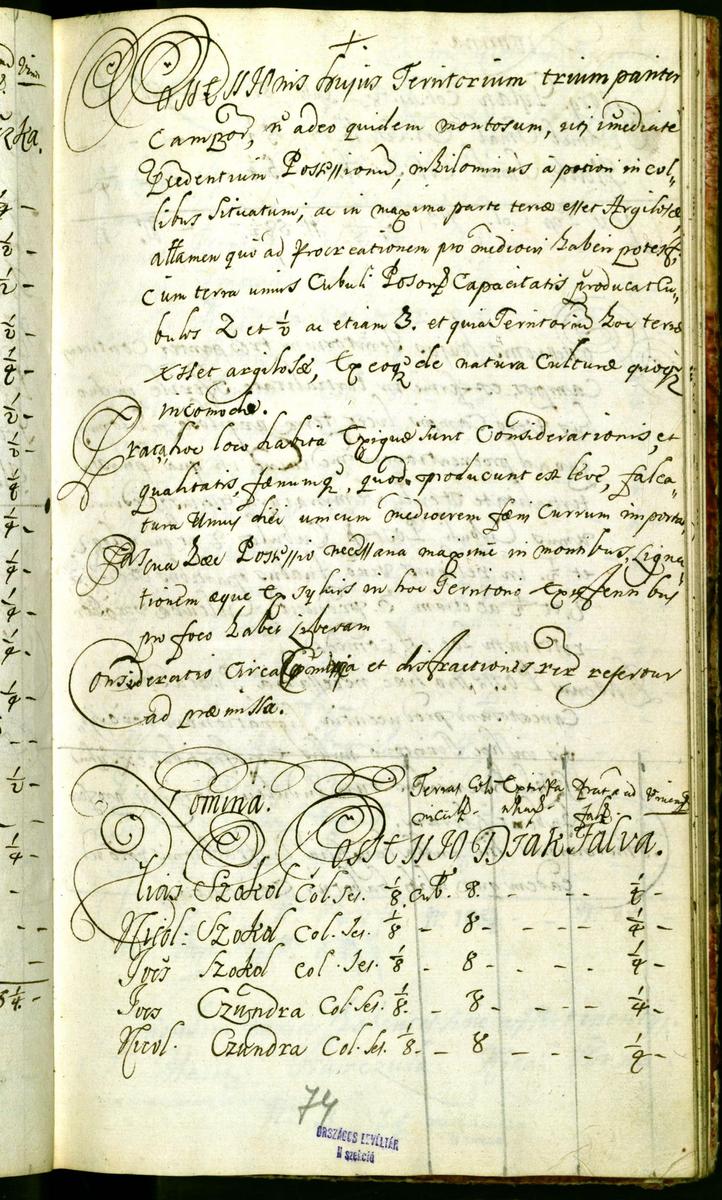 Possessionis hujus Territorium trium pariter
Campor, n adeo quidem montosum, uti imediate
Possession, nihilominus a potiori in col-
libus situatum; ac in maxima parte terræ esset Argilosæ,
attamen quo ad Procreationem pro mediocri haberi potest,
Cum terra unius Cubuli Poson Capacitatis producat Cu-
bulos 2 et ½ ac etiam 3. et quia Territorium hoc terræ
esset argilosæ, Ex eoq de natura Culturæ quoq
incomodæ.
Prata hoc loco habita Exiguæ sunt Considerationis, et
qualitatis, fænumq, quod producunt est leve, falca-
tura Unius diei unicum mediocrem fæni Currum importat
Pascua Hæc Possessio necessaria maxime in montibus, Ligna-
tionem æque Ex sylvis in hoc Territorio Existentibus
pro foco habet Liberam
Consideratio Circa et distractiones rer refertur
ad præmissa.
Nomina. Terras Colo Extirpa Prata ad
incult. falc
Possessio Diak Falva.
Ilias Szokol Col. Ses. ⅛. Cub. 8. - - - ¼ -
Nicol. Szokol Col. Ses. ⅛ - 8 - - - - ¼ -
Ivos Szokol Col. Ses. ⅛ - 8 - - - - ¼ -
Ivos Czundra Col. Ses. ⅛. - 8 - - - - ¼ -
Nicol. Czundra Col. Ses. ⅛. - 8 - - - - ¼ -
74
ORSZÁGOS LEVÉLTÁR
II szekció